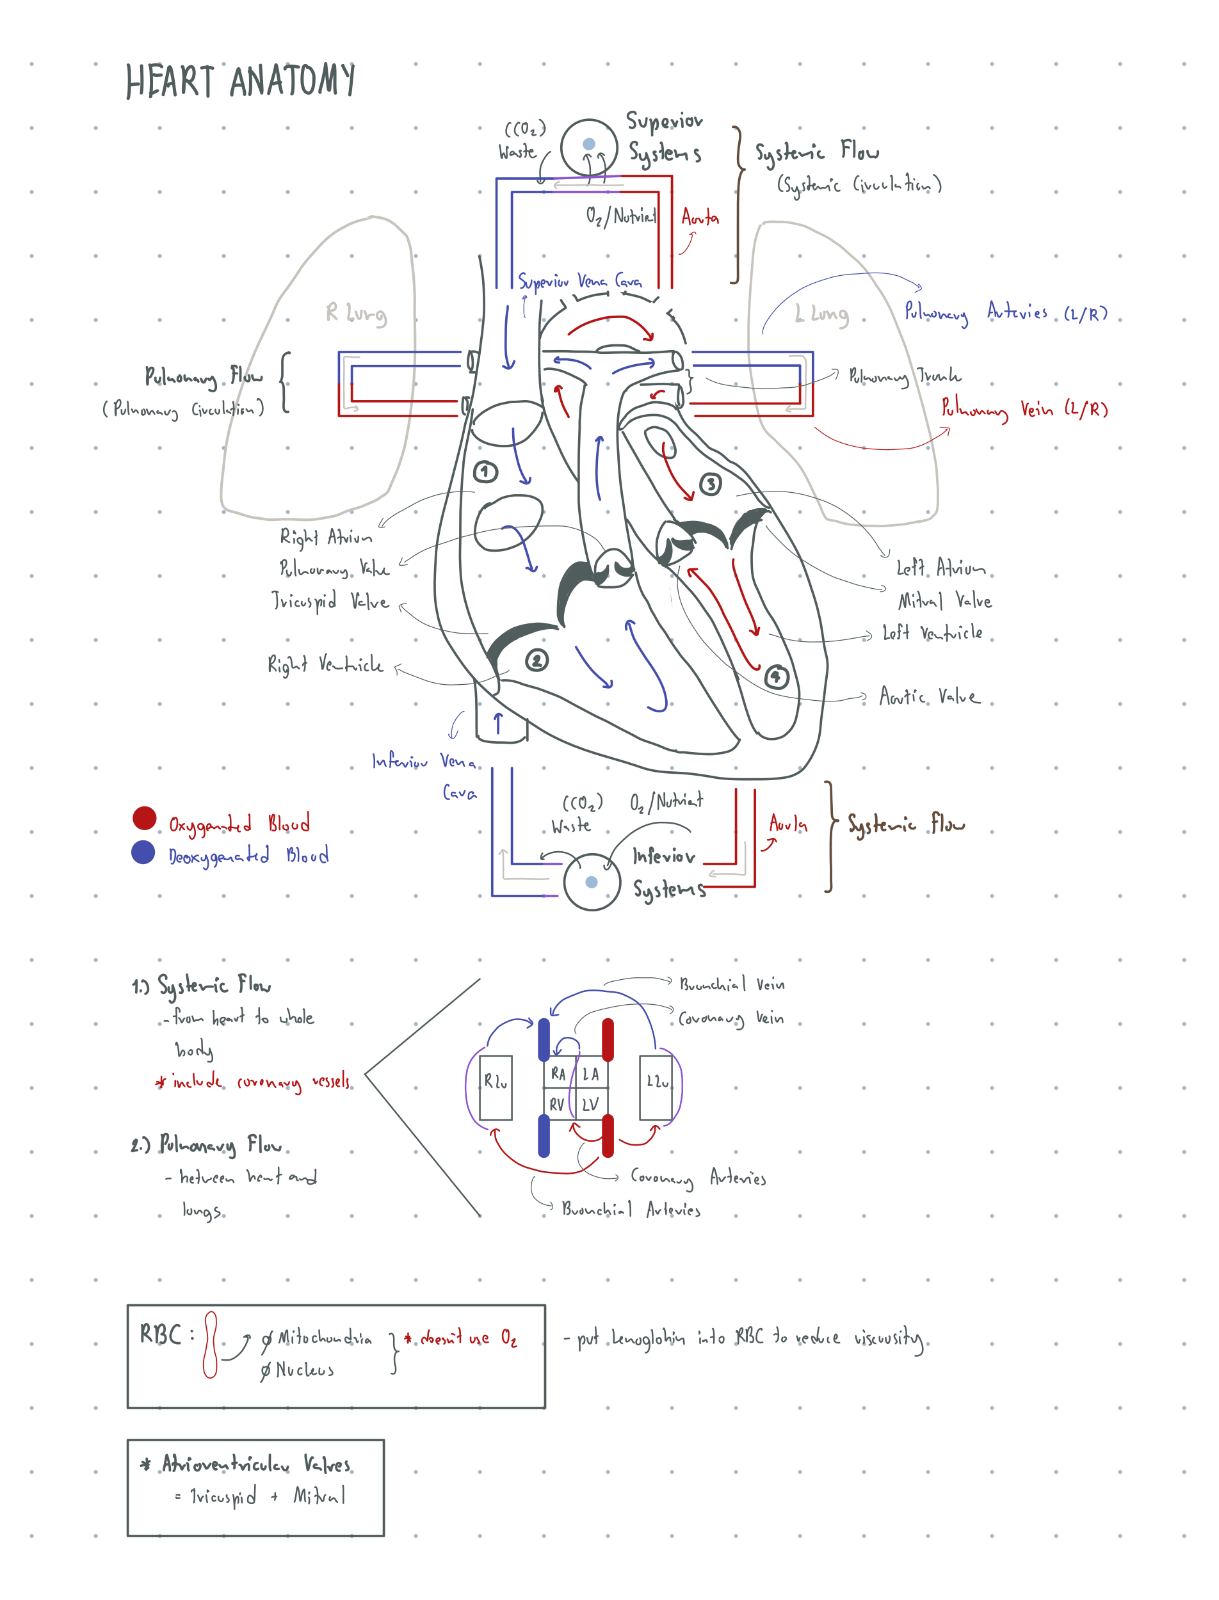 HEART ANATOMY
(CO₂)
Waste
Superior
Systems
Systemic Flow
(Systemic Circulation)
O₂/Nutrient
Aorta
Superior Vena Cava
R Lung
L Lung
Pulmonary Arteries (L/R)
Pulmonary Flow
(Pulmonary Circulation)
Pulmonary Trunk
Pulmonary Vein (L/R)
1
3
Right Atrium
Pulmonary Valve
Tricuspid Valve
Right Ventricle
Left Atrium
Mitral Valve
Left Ventricle
2
4
Aortic Valve
Inferior Vena
Cava
(CO₂)
Waste
O₂/Nutrient
Aorta
Systemic Flow
Inferior
Systems
Oxygenated Blood
Deoxygenated Blood
1.) Systemic Flow
- from heart to whole
body
* include coronary vessels
2.) Pulmonary Flow
- between heart and
lungs
Bronchial Vein
Coronary Vein
R Lu
RA
LA
L Lu
RV
LV
Coronary Arteries
Bronchial Arteries
RBC :
∅ Mitochondria
∅ Nucleus
* doesn't use O₂
- put hemoglobin into RBC to reduce viscousity
* Atrioventricular Valves
= Tricuspid + Mitral